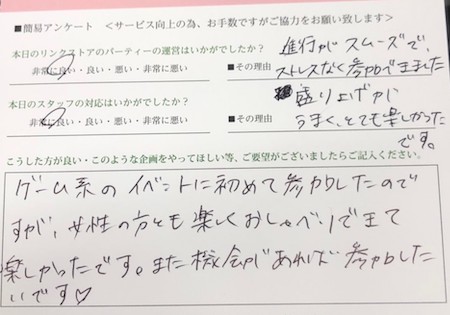 ■簡易アンケート <サービス向上の為、お手数ですがご協力をお願い致します>
本日のリンクストアのパーティーの運営はいかがでしたか?
非常に良い・良い・悪い・非常に悪い ■その理由
進行がスムーズで、
ストレスなく参加できました
本日のスタッフの対応はいかがでしたか?
非常に良い・良い・悪い・非常に悪い ■その理由
盛り上げが
うまく、とても楽しかった
です。
こうした方が良い・このような企画をやってほしい等、ご要望がございましたらご記入ください。
ゲーム系のイベントに初めて参加したので
すが、女性の方とも楽しくおしゃべりできて
楽しかったです。また機会があれば参加した
いです♡